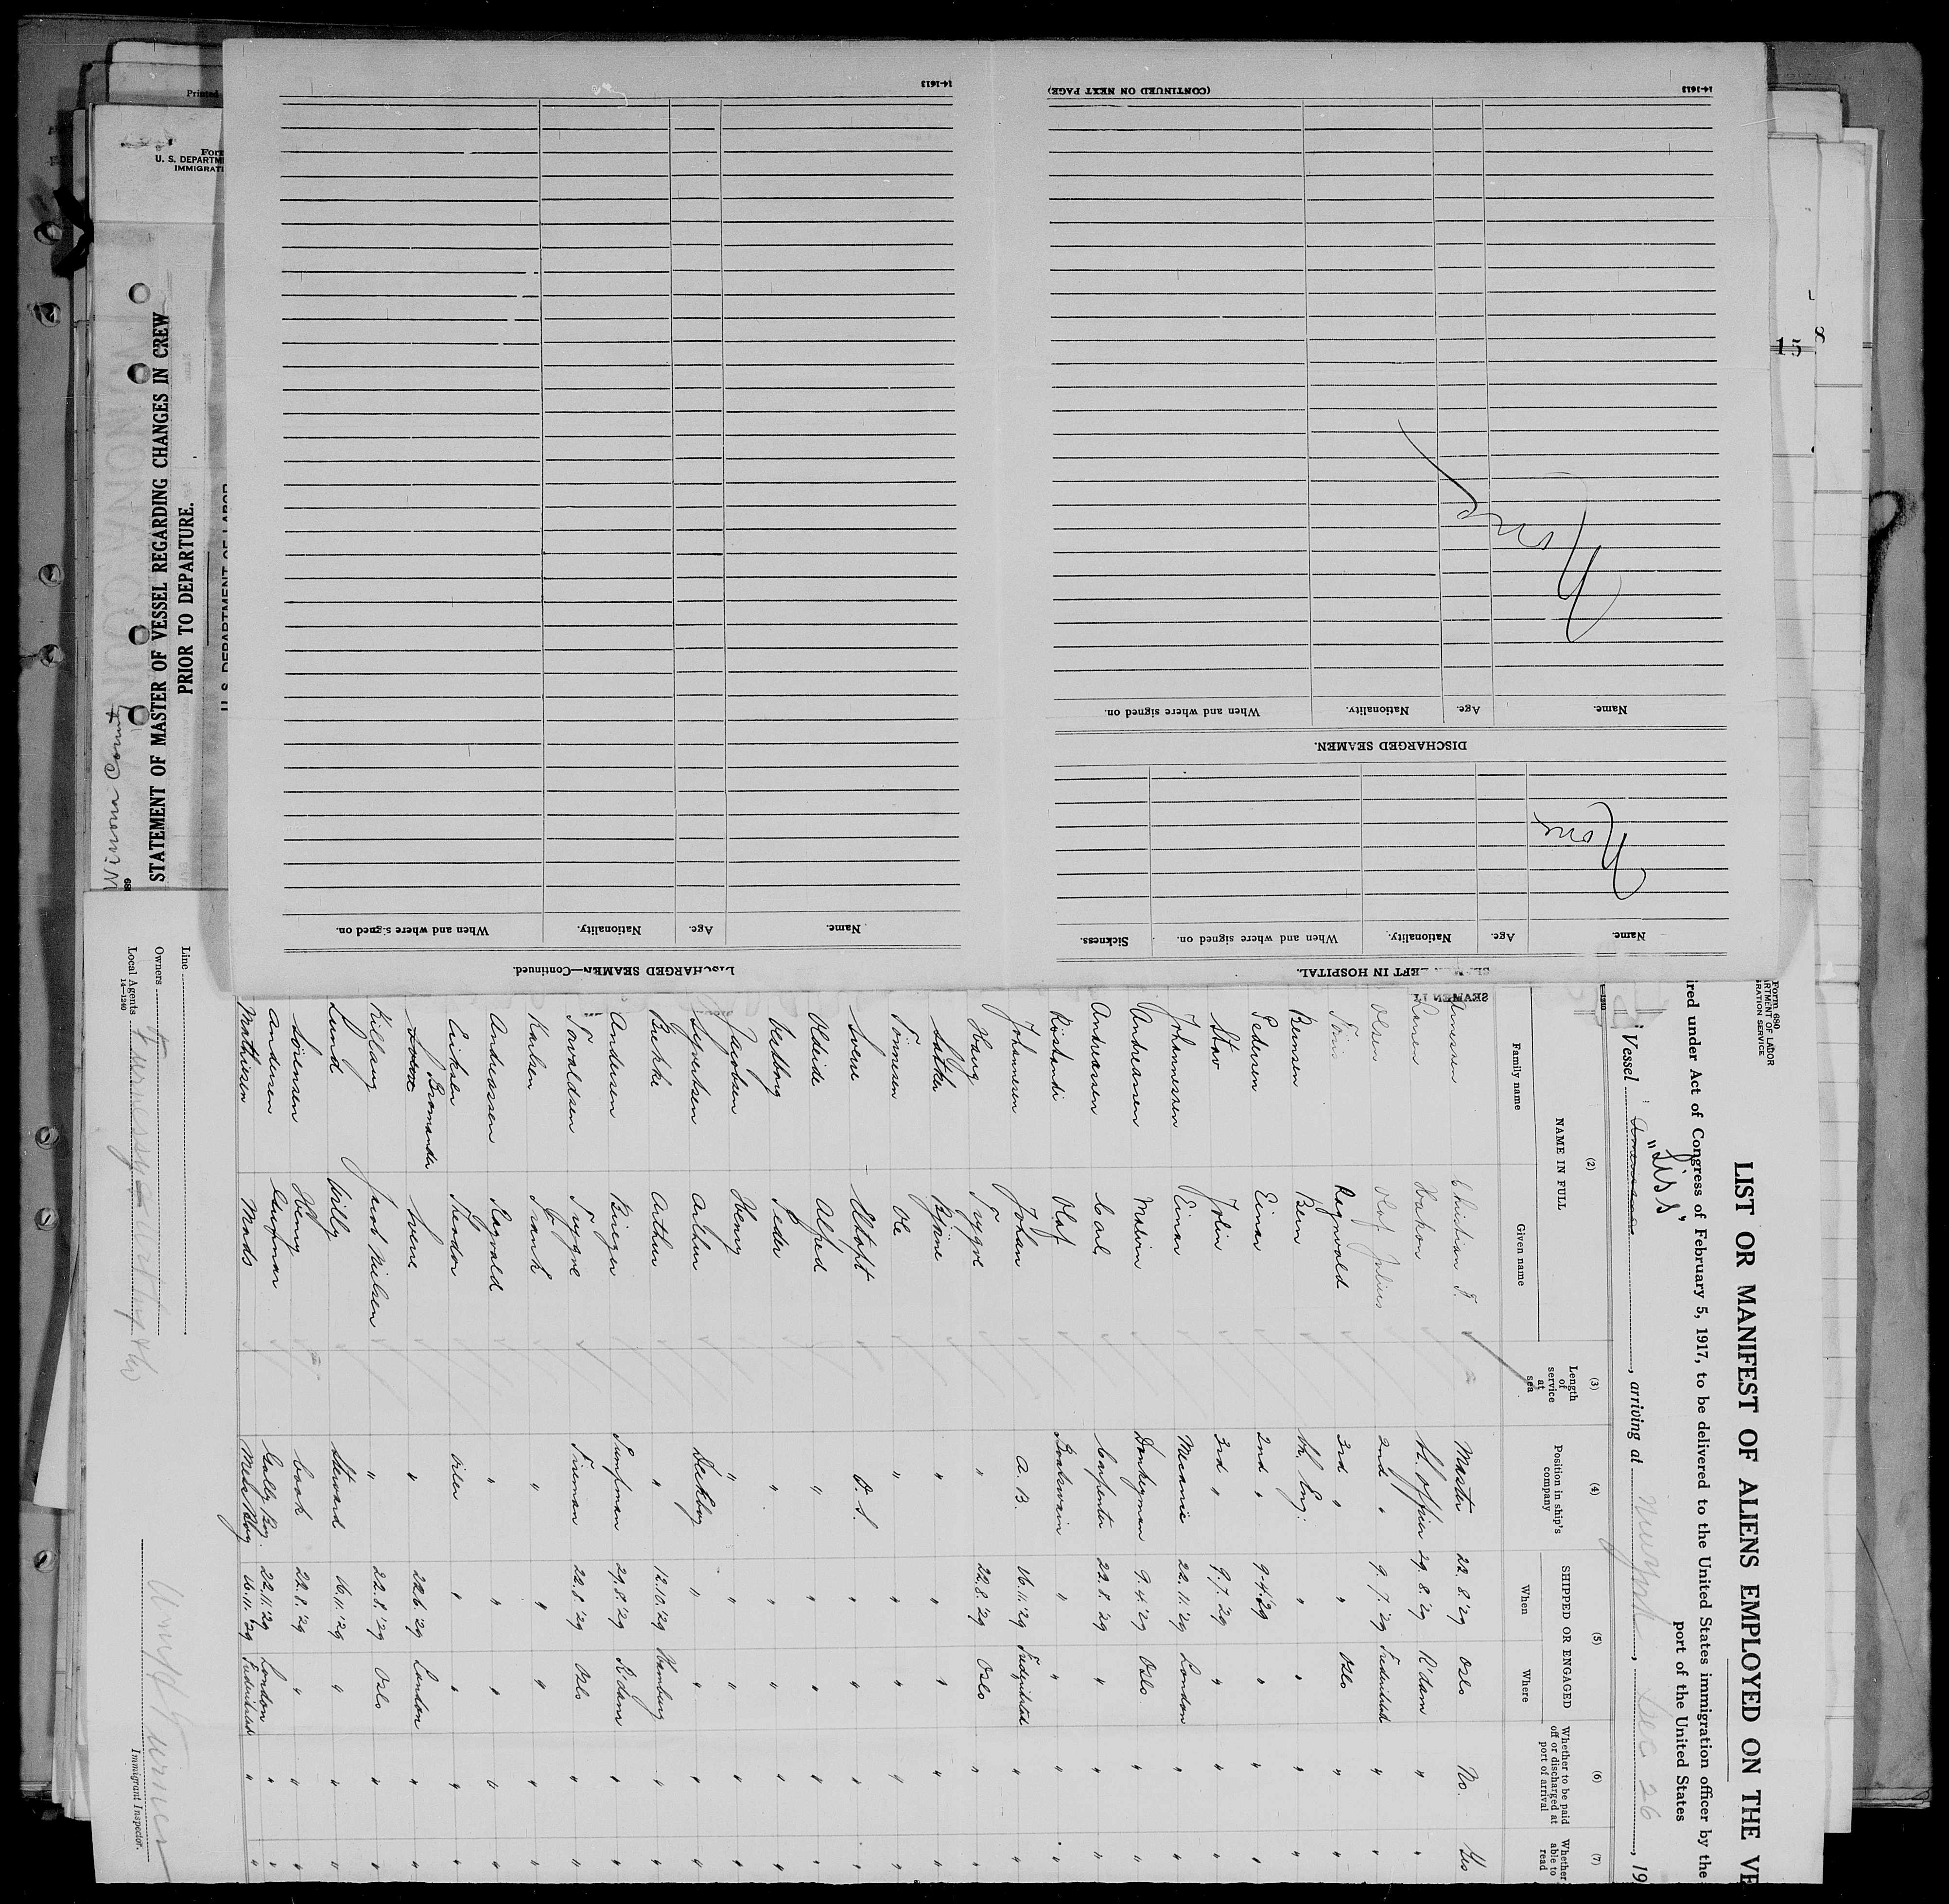 14-1613
(CONTINUED ON NEXT PAGE)
14-1613
Printed
Form
U. S. DEPARTME
IMMIGRATI
STATEMENT OF MASTER OF VESSEL REGARDING CHANGES IN CREW
PRIOR TO DEPARTURE.
U. S. DEPARTMENT OF LABOR
Winona County
689
15
8
SEAMEN LEFT IN HOSPITAL.
Name.
Age.
Nationality.
When and where signed on.
Sickness.
None
DISCHARGED SEAMEN.
Name.
Age.
Nationality.
When and where signed on.
None
DISCHARGED SEAMEN—Continued.
Name.
Age.
Nationality.
When and where signed on.
Form 680
RTMENT OF LABOR
GRATION SERVICE
LIST OR MANIFEST OF ALIENS EMPLOYED ON THE VE
ired under Act of Congress of February 5, 1917, to be delivered to the United States immigration officer by the
port of the United States
Vessel "Liss", arriving at New York, Dec 26, 19
(2) (3) (4) (5) (6) (7)
NAME IN FULL
Family name Given name
Length of service at sea
Position in ship's company
SHIPPED OR ENGAGED
When Where
Whether to be paid off or discharged at port of arrival
Whether able to read
Christian F. Master 22.8.'29 Oslo No. Yes
Hakon Ch. Officer 29.8.'29 R'dam " "
Olsen Olaf Julius 2nd " 9.7.'29 Fredrikstad " "
Ragnvald 3rd " " Oslo " "
Bernsen Bern Ch. Eng. " " " "
Pedersen Einar 2nd " 9.4.'29 " " "
Stav John 3rd " 9.7.'29 " " "
Johannessen Einar Mecanic 22.11.'29 London " "
Andreassen Malvin Donkeyman 9.4.'29 Oslo " "
Andreassen Carl Carpenter 22.8.'29 " " "
Olaf Boatswain " " " "
Johannesen Johan A. B. 16.11.'29 Fredrikstad " "
Haug Trygve " 22.8.'29 Oslo " "
Bjarne " " " " "
Tönnesen Ole " " " " "
Sverre O. S. " " " "
Oldeide Alfred " " " " "
Peder " " " " "
Jacobsen Henry " " " " "
Syvertsen Arthur Deckboy " " " "
Bekke Arthur " 12.10.'29 Hamburg " "
Andersen Birger Pumpman 29.8.'29 R'dam " "
Torvaldsen Trygve Fireman 22.8.'29 Oslo " "
Karlsen Frank " " " " "
Andreassen Ragvald " " " " "
Eriksen Theodor Oiler " " " "
Bromander Sverre " 22.6.'29 London " "
Killang Jacob Nielsen " 22.8.'29 Oslo " "
Lund Willy Steward 16.11.'29 " " "
Sörensen Henry Cook 22.8.'29 " " "
Andersen Gunnar Gally Boy. 22.11.'29 London " "
Mathiesen Mads Mess Boy 16.11.'29 Fredrikstad " "
Line
Owners
Local Agents Furness
14—1240
Immigrant Inspector.